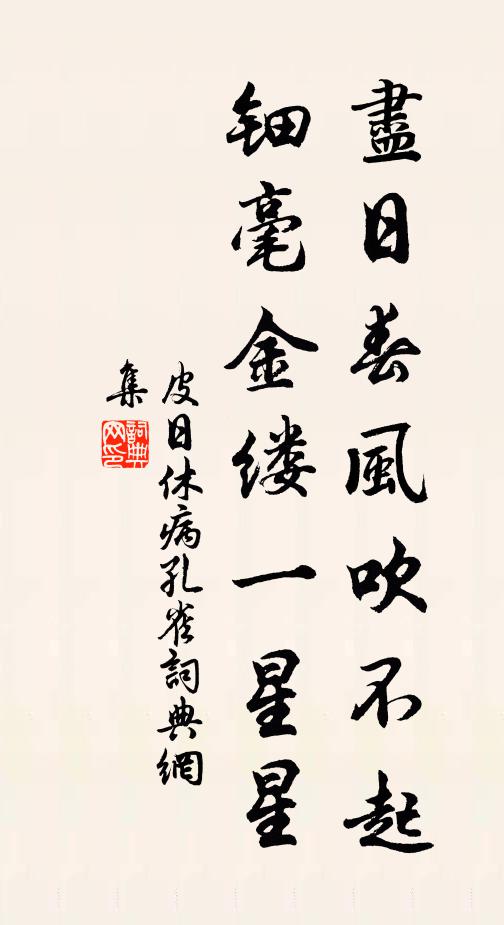 盡日春風吹不起
钿毫金缕一星星
皮日休病孔雀詞典網
集
詞典
网印